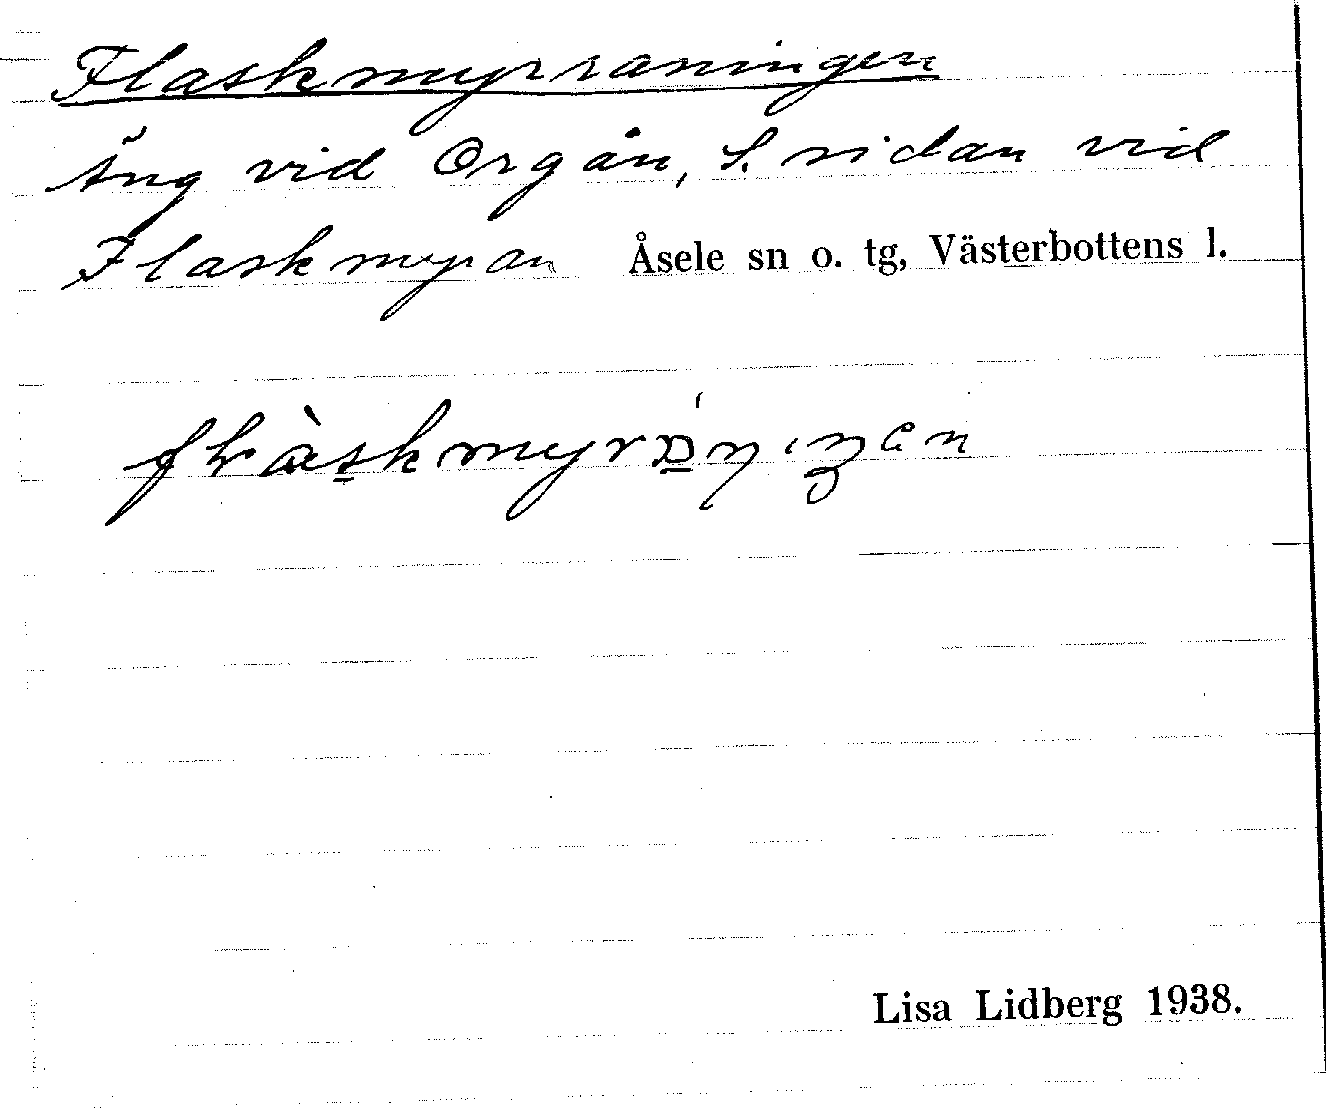 Flaskmyrraningen
Äng vid Orgån, S. sidan vid
Flaskmyran Åsele sn o. tg, Västerbottens l.
Lisa Lidberg 1938.